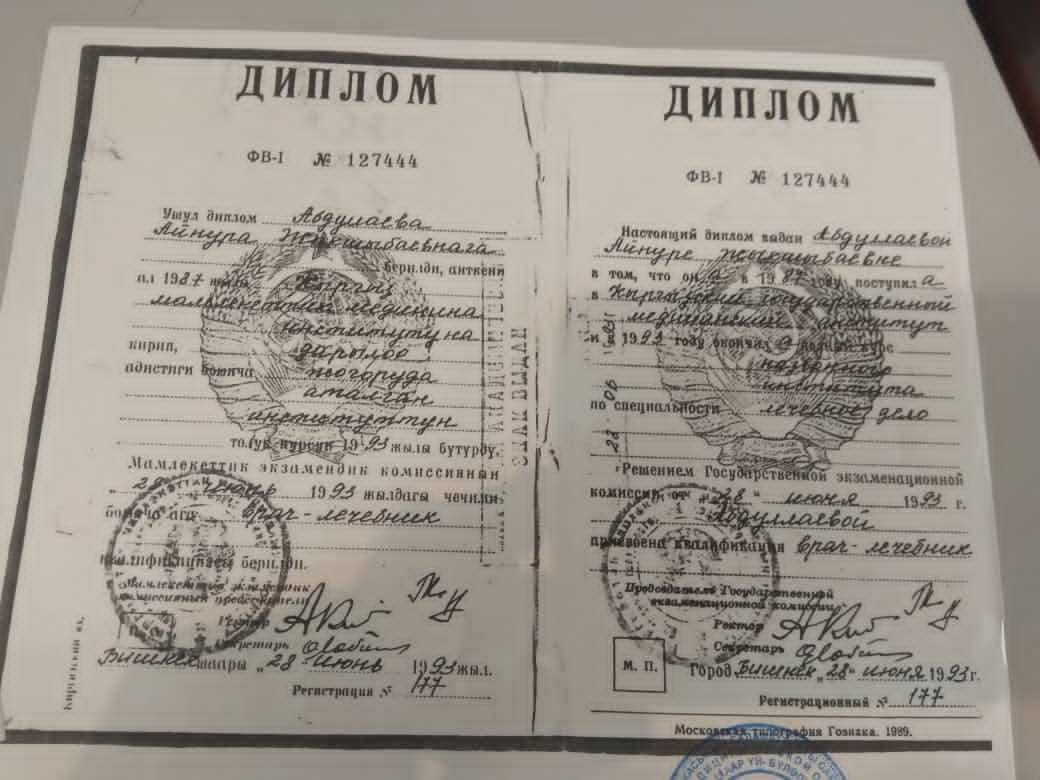 ДИПЛОМ
ФВ-I № 127444
Ушул диплом Абдулаева
Айнура Жыкшыбаевнага
берилди, анткени
ал 1987 жылы Кыргыз
мамлекеттик медицина
институтуна
кирип, дарылоо
адистиги боюнча жогоруда
аталган
институттун
толук курсун 1993 жылы бүтүрдү.
Мамлекеттик экзамендик комиссиянын
"28" июнь 1993 жылдагы чечими
боюнча ага врач-лечебник
квалификациясы берилди.
Мамлекеттик экзамендик
комиссиянын председатели
Ректор
Секретарь
Бишкек шаары "28" июнь 1993 жыл.
Регистрация № 177
Киргизский яз.
ЗНАК ВЫДАН
ДИПЛОМ
ФВ-I № 127444
Настоящий диплом выдан Абдуллаевой
Айнуре Жыкшыбаевне
в том, что она в 1987 году поступила
в Кыргызский государственный
медицинский институт
и в 1993 году окончила полный курс
названного
института
по специальности лечебное дело
Решением Государственной экзаменационной
комиссии от "28" июня 1993 г.
Абдуллаевой
присвоена квалификация врач-лечебник
Председатель Государственной
экзаменационной комиссии
Ректор
Секретарь
М. П.
Город Бишкек "28" июня 1993 г.
Регистрационный № 177
Московская типография Гознака. 1989.